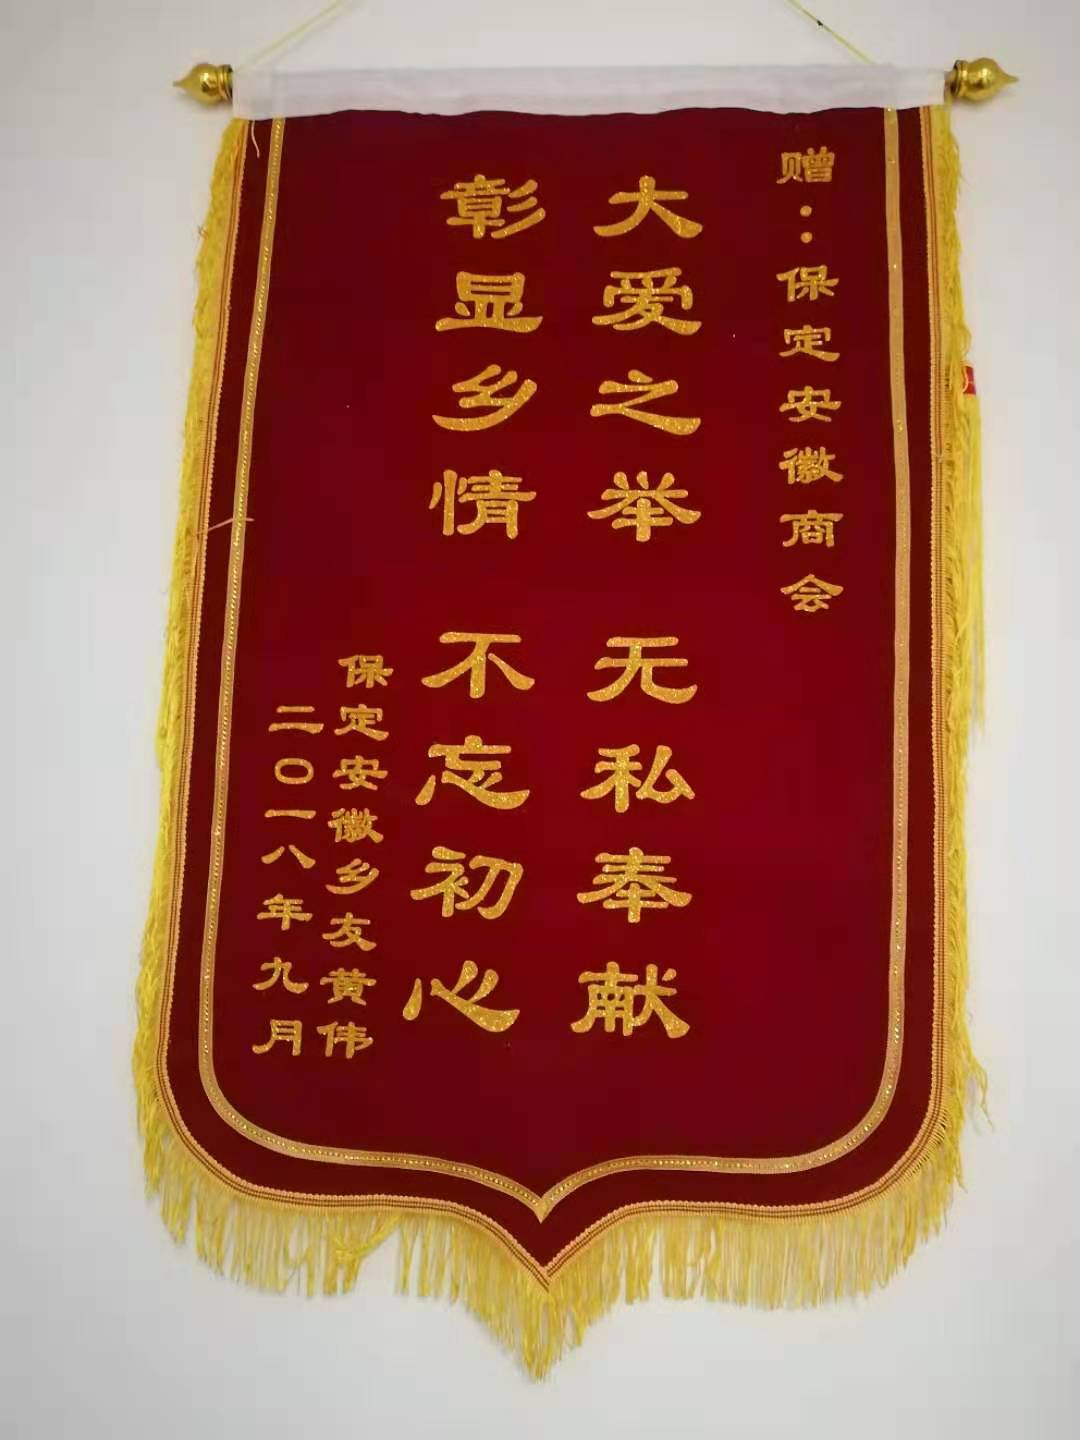 赠：保定安徽商会
大爱之举 无私奉献
彰显乡情 不忘初心
保定安徽乡友黄伟
二〇一八年九月